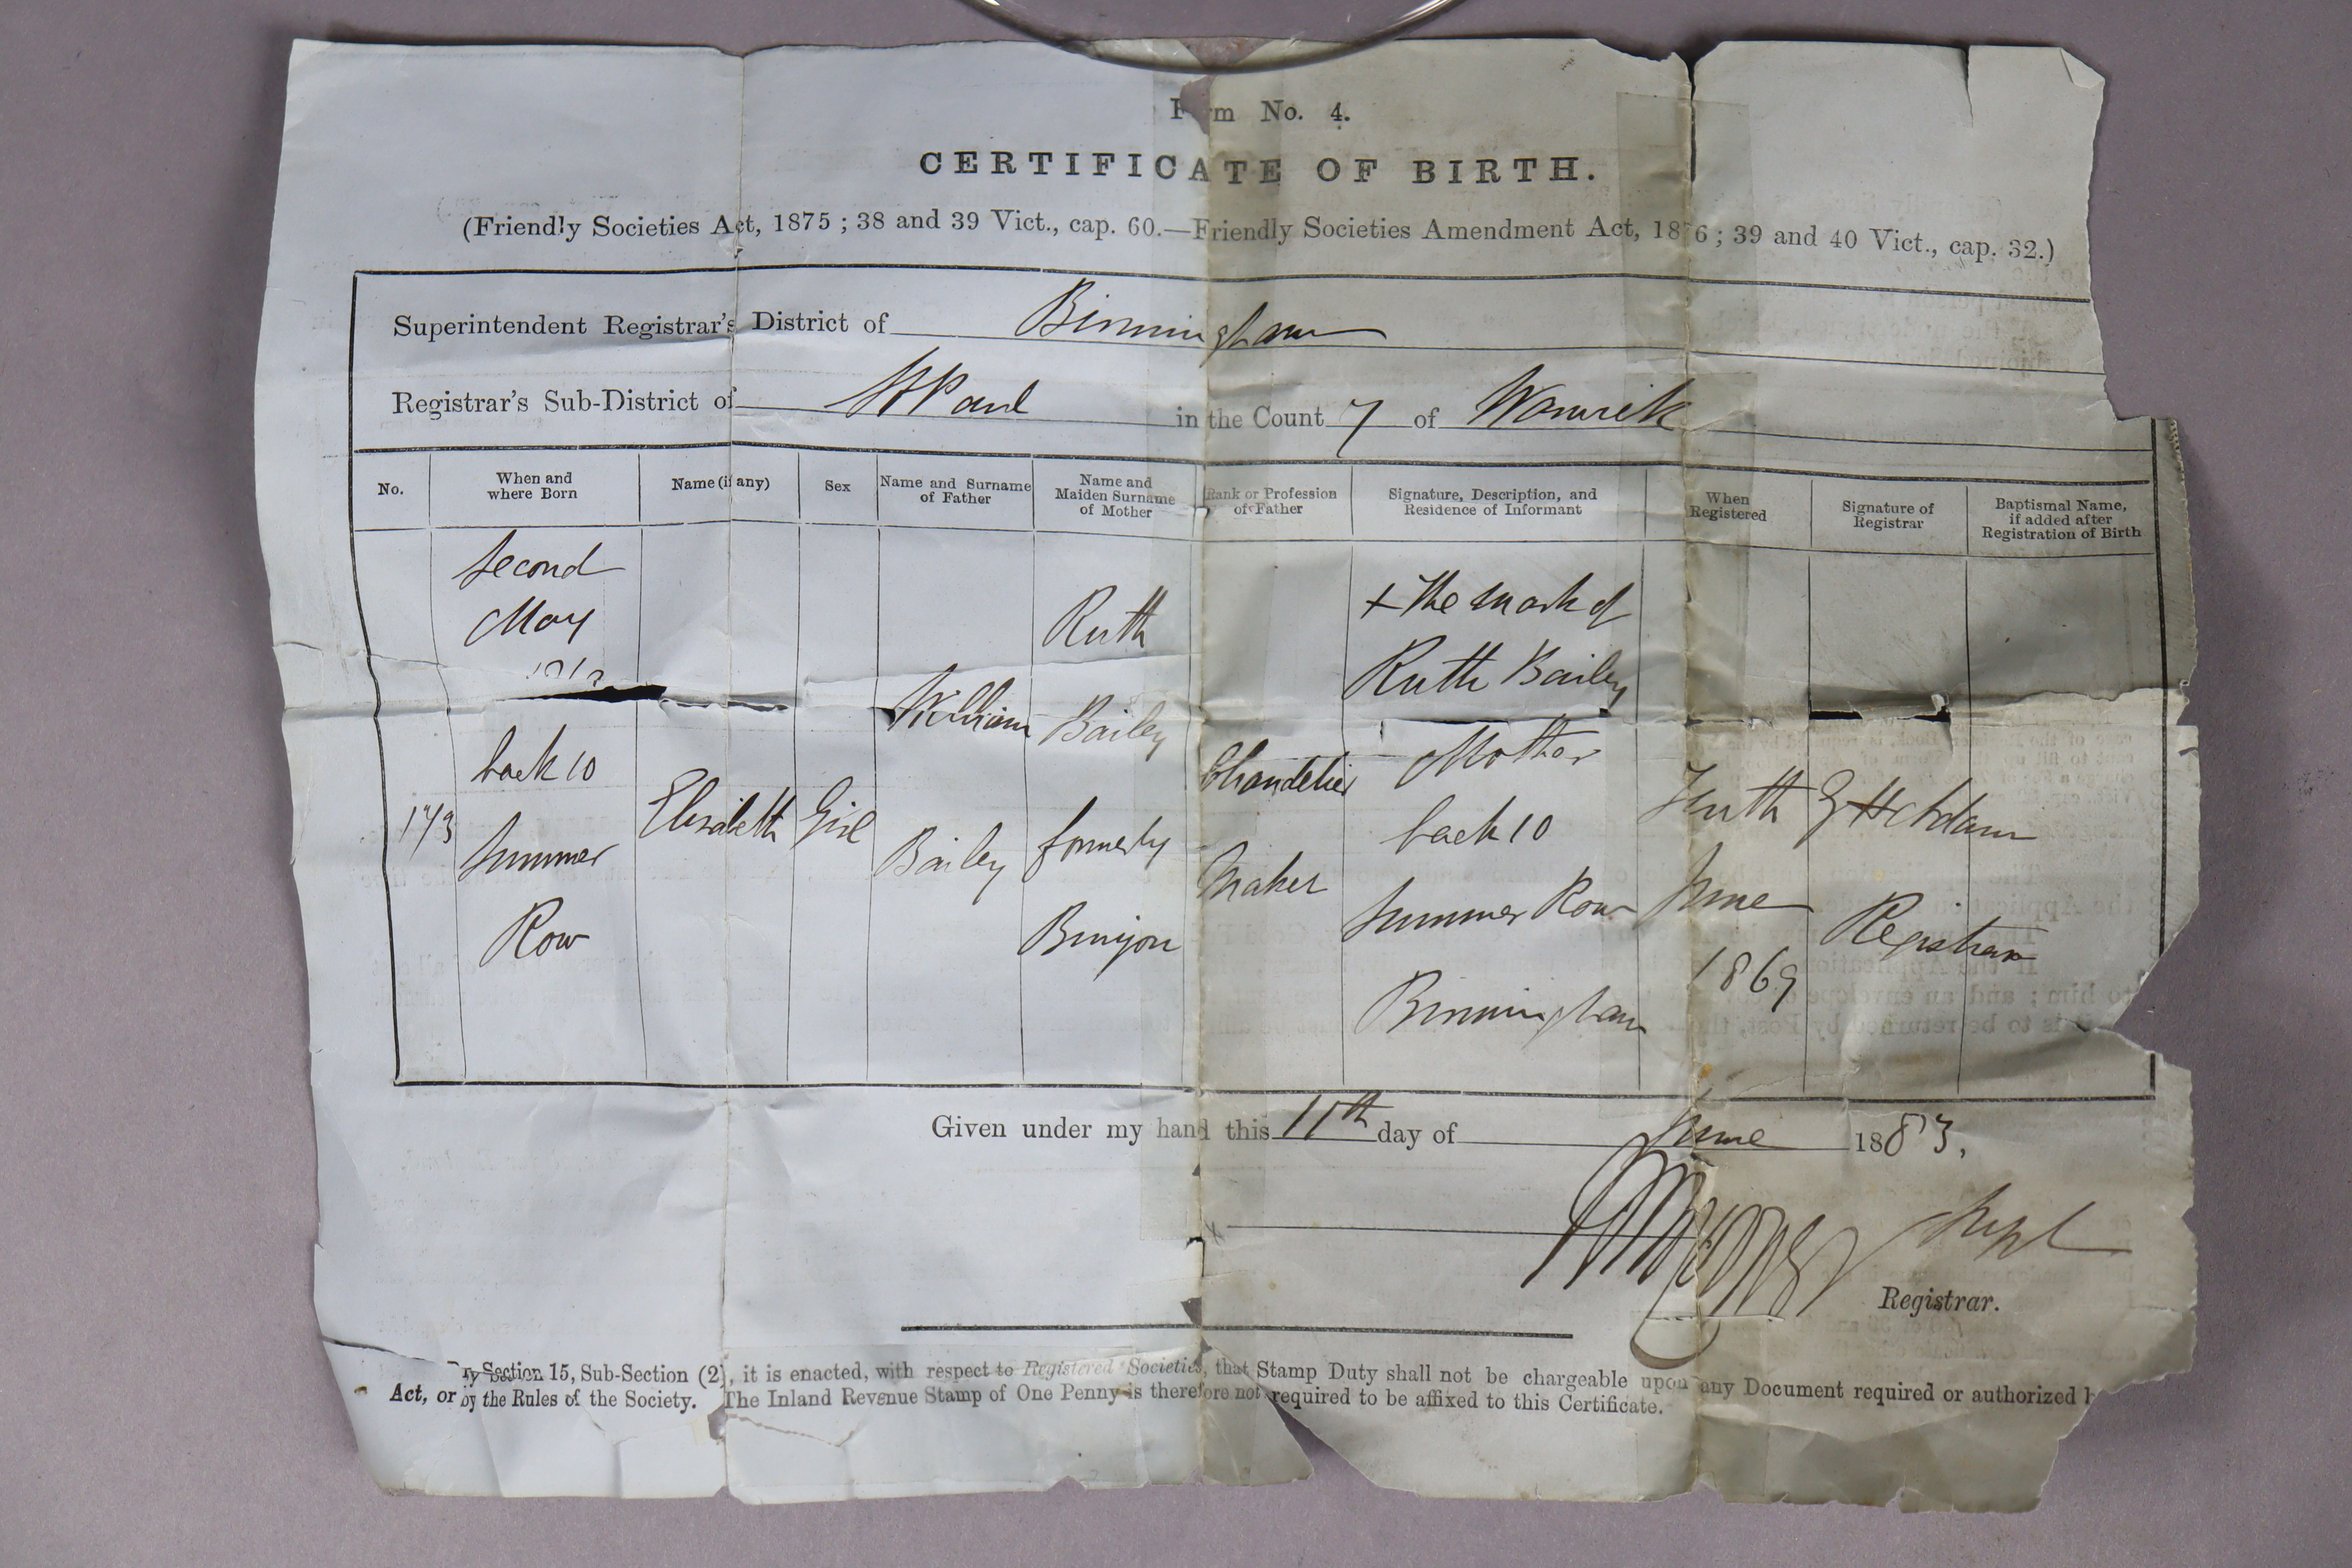 Form No. 4.
CERTIFICATE OF BIRTH.
(Friendly Societies Act, 1875 ; 38 and 39 Vict., cap. 60.—Friendly Societies Amendment Act, 1876 ; 39 and 40 Vict., cap. 32.)
Superintendent Registrar's District of Birmingham
Registrar's Sub-District of St Paul in the County of Warwick
No.
When and
where Born
Name (if any)
Sex
Name and Surname
of Father
Name and
Maiden Surname
of Mother
Rank or Profession
of Father
Signature, Description, and
Residence of Informant
When
Registered
Signature of
Registrar
Baptismal Name,
if added after
Registration of Birth
173
Second
May
back 10
Summer
Row
Elizabeth
Girl
William
Bailey
Ruth
Bailey
formerly
Chandelier
Maker
x The mark of
Ruth Bailey
Mother
back 10
Summer Row
Birmingham
Tenth
June
1869
Adam
Registrar
Given under my hand this 11th day of June 1883.
Supt
Registrar.
By Section 15, Sub-Section (2), it is enacted, with respect to Registered Societies, that Stamp Duty shall not be chargeable upon any Document required or authorized b
Act, or by the Rules of the Society. The Inland Revenue Stamp of One Penny is therefore not required to be affixed to this Certificate.